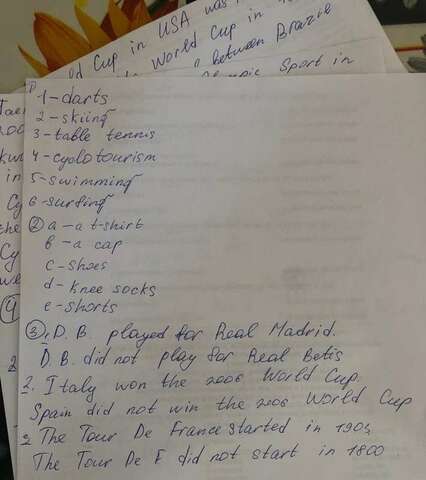 d Cup in USA was
World Cup in
between Brazil
Olympic Sport in
1-darts
2-skiing
3-table tennis
4-cyclotourism
5-swimming
6-surfing
② a-a t-shirt
b-a cap
c-shoes
d-knee socks
e-shorts
③ 1. D.B. played for Real Madrid.
D.B. did not play for Real Betis
2. Italy won the 2006 World Cup.
Spain did not win the 2006 World Cup
3 The Tour De France started in 1903
The Tour De F did not start in 1800